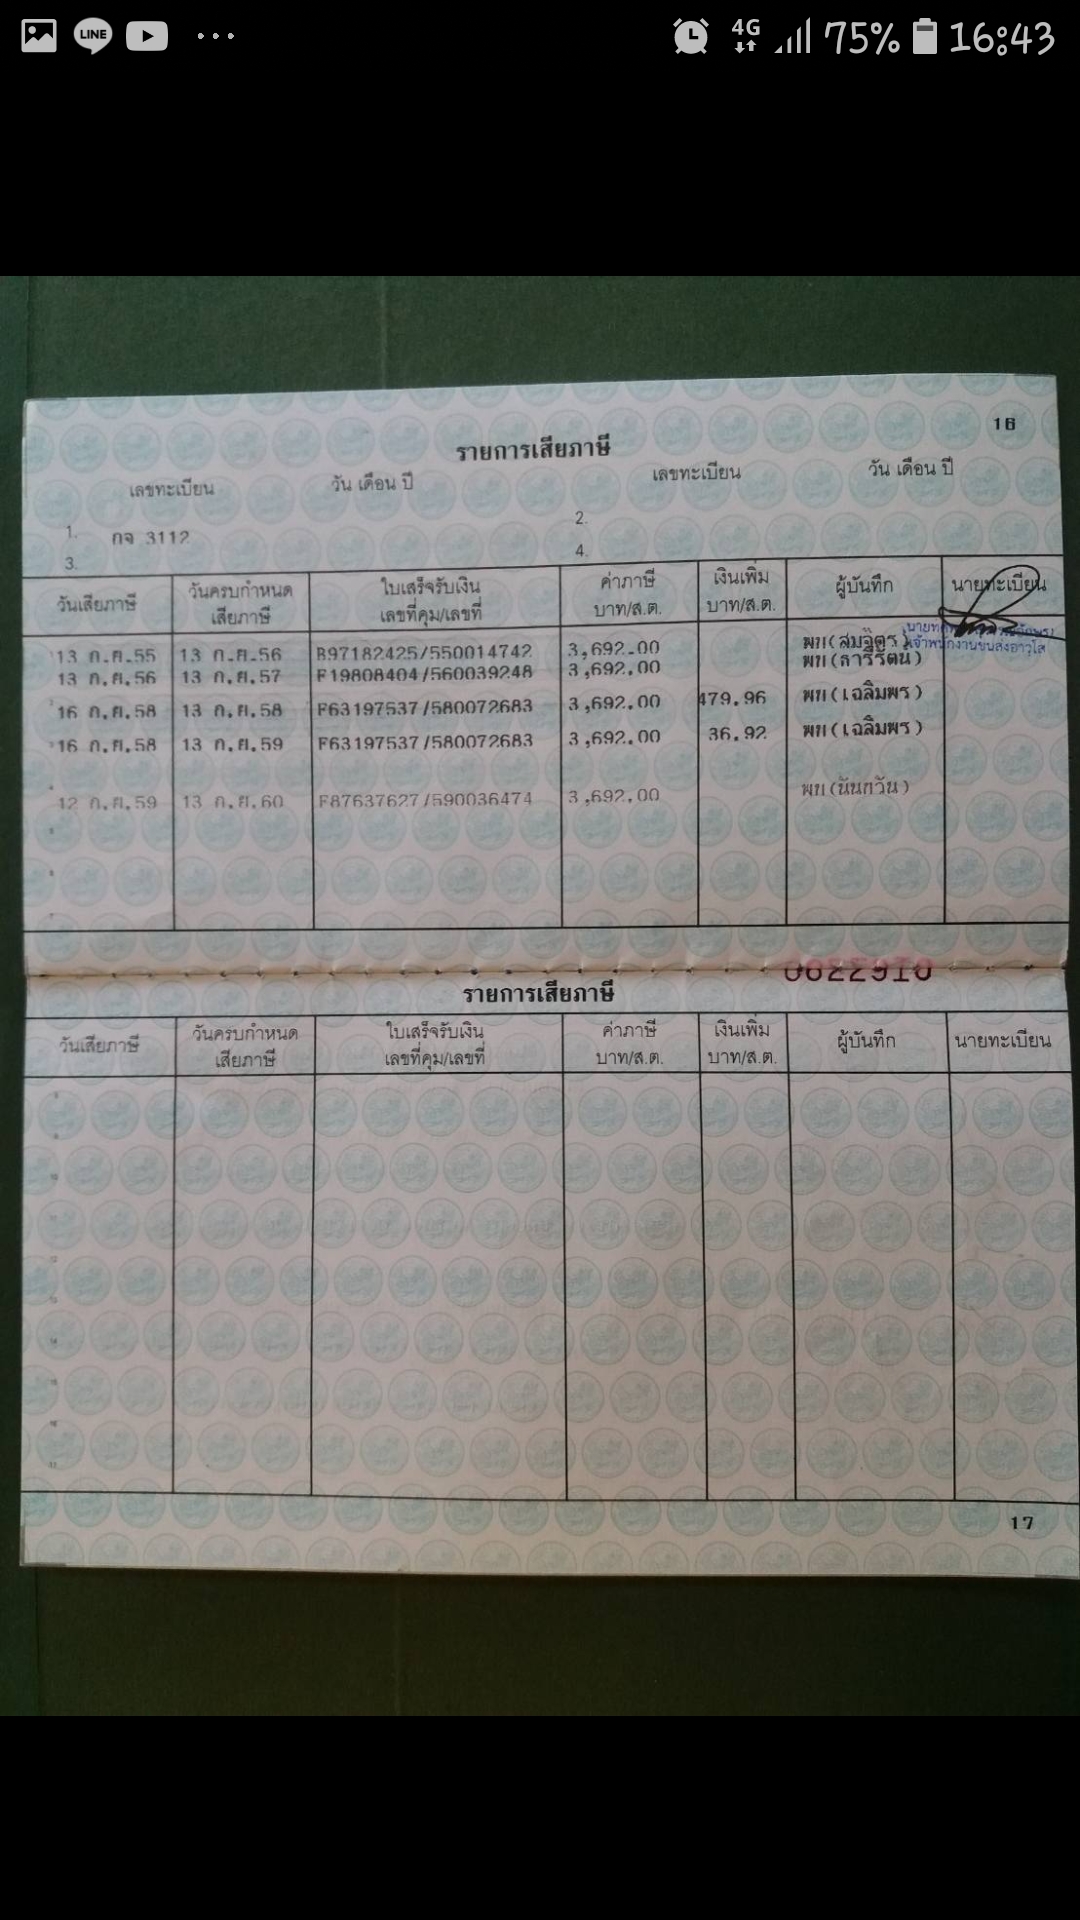 LINE
4G 75% 16:43
16
รายการเสียภาษี
เลขทะเบียน วัน เดือน ปี เลขทะเบียน วัน เดือน ปี
1. กจ 3112 2.
3. 4.
วันเสียภาษี วันครบกำหนดเสียภาษี ใบเสร็จรับเงิน เลขที่คุม/เลขที่ ค่าภาษี บาท/ส.ต. เงินเพิ่ม บาท/ส.ต. ผู้บันทึก นายทะเบียน
13 ก.ย.55 13 ก.ย.56 B97182425/550014742 3,692.00 พท(สมจิตร)
13 ก.ย.56 13 ก.ย.57 F19808404/560039248 3,692.00
16 ก.ย.58 13 ก.ย.58 F63197537/580072683 3,692.00 479.96 พท(เฉลิมพร)
16 ก.ย.58 13 ก.ย.59 F63197537/580072683 3,692.00 36.92 พท(เฉลิมพร)
12 ก.ย.59 13 ก.ย.60 F87637627/590036474 3,692.00 พท(นันทวัน)
รายการเสียภาษี
วันเสียภาษี วันครบกำหนดเสียภาษี ใบเสร็จรับเงิน เลขที่คุม/เลขที่ ค่าภาษี บาท/ส.ต. เงินเพิ่ม บาท/ส.ต. ผู้บันทึก นายทะเบียน
17